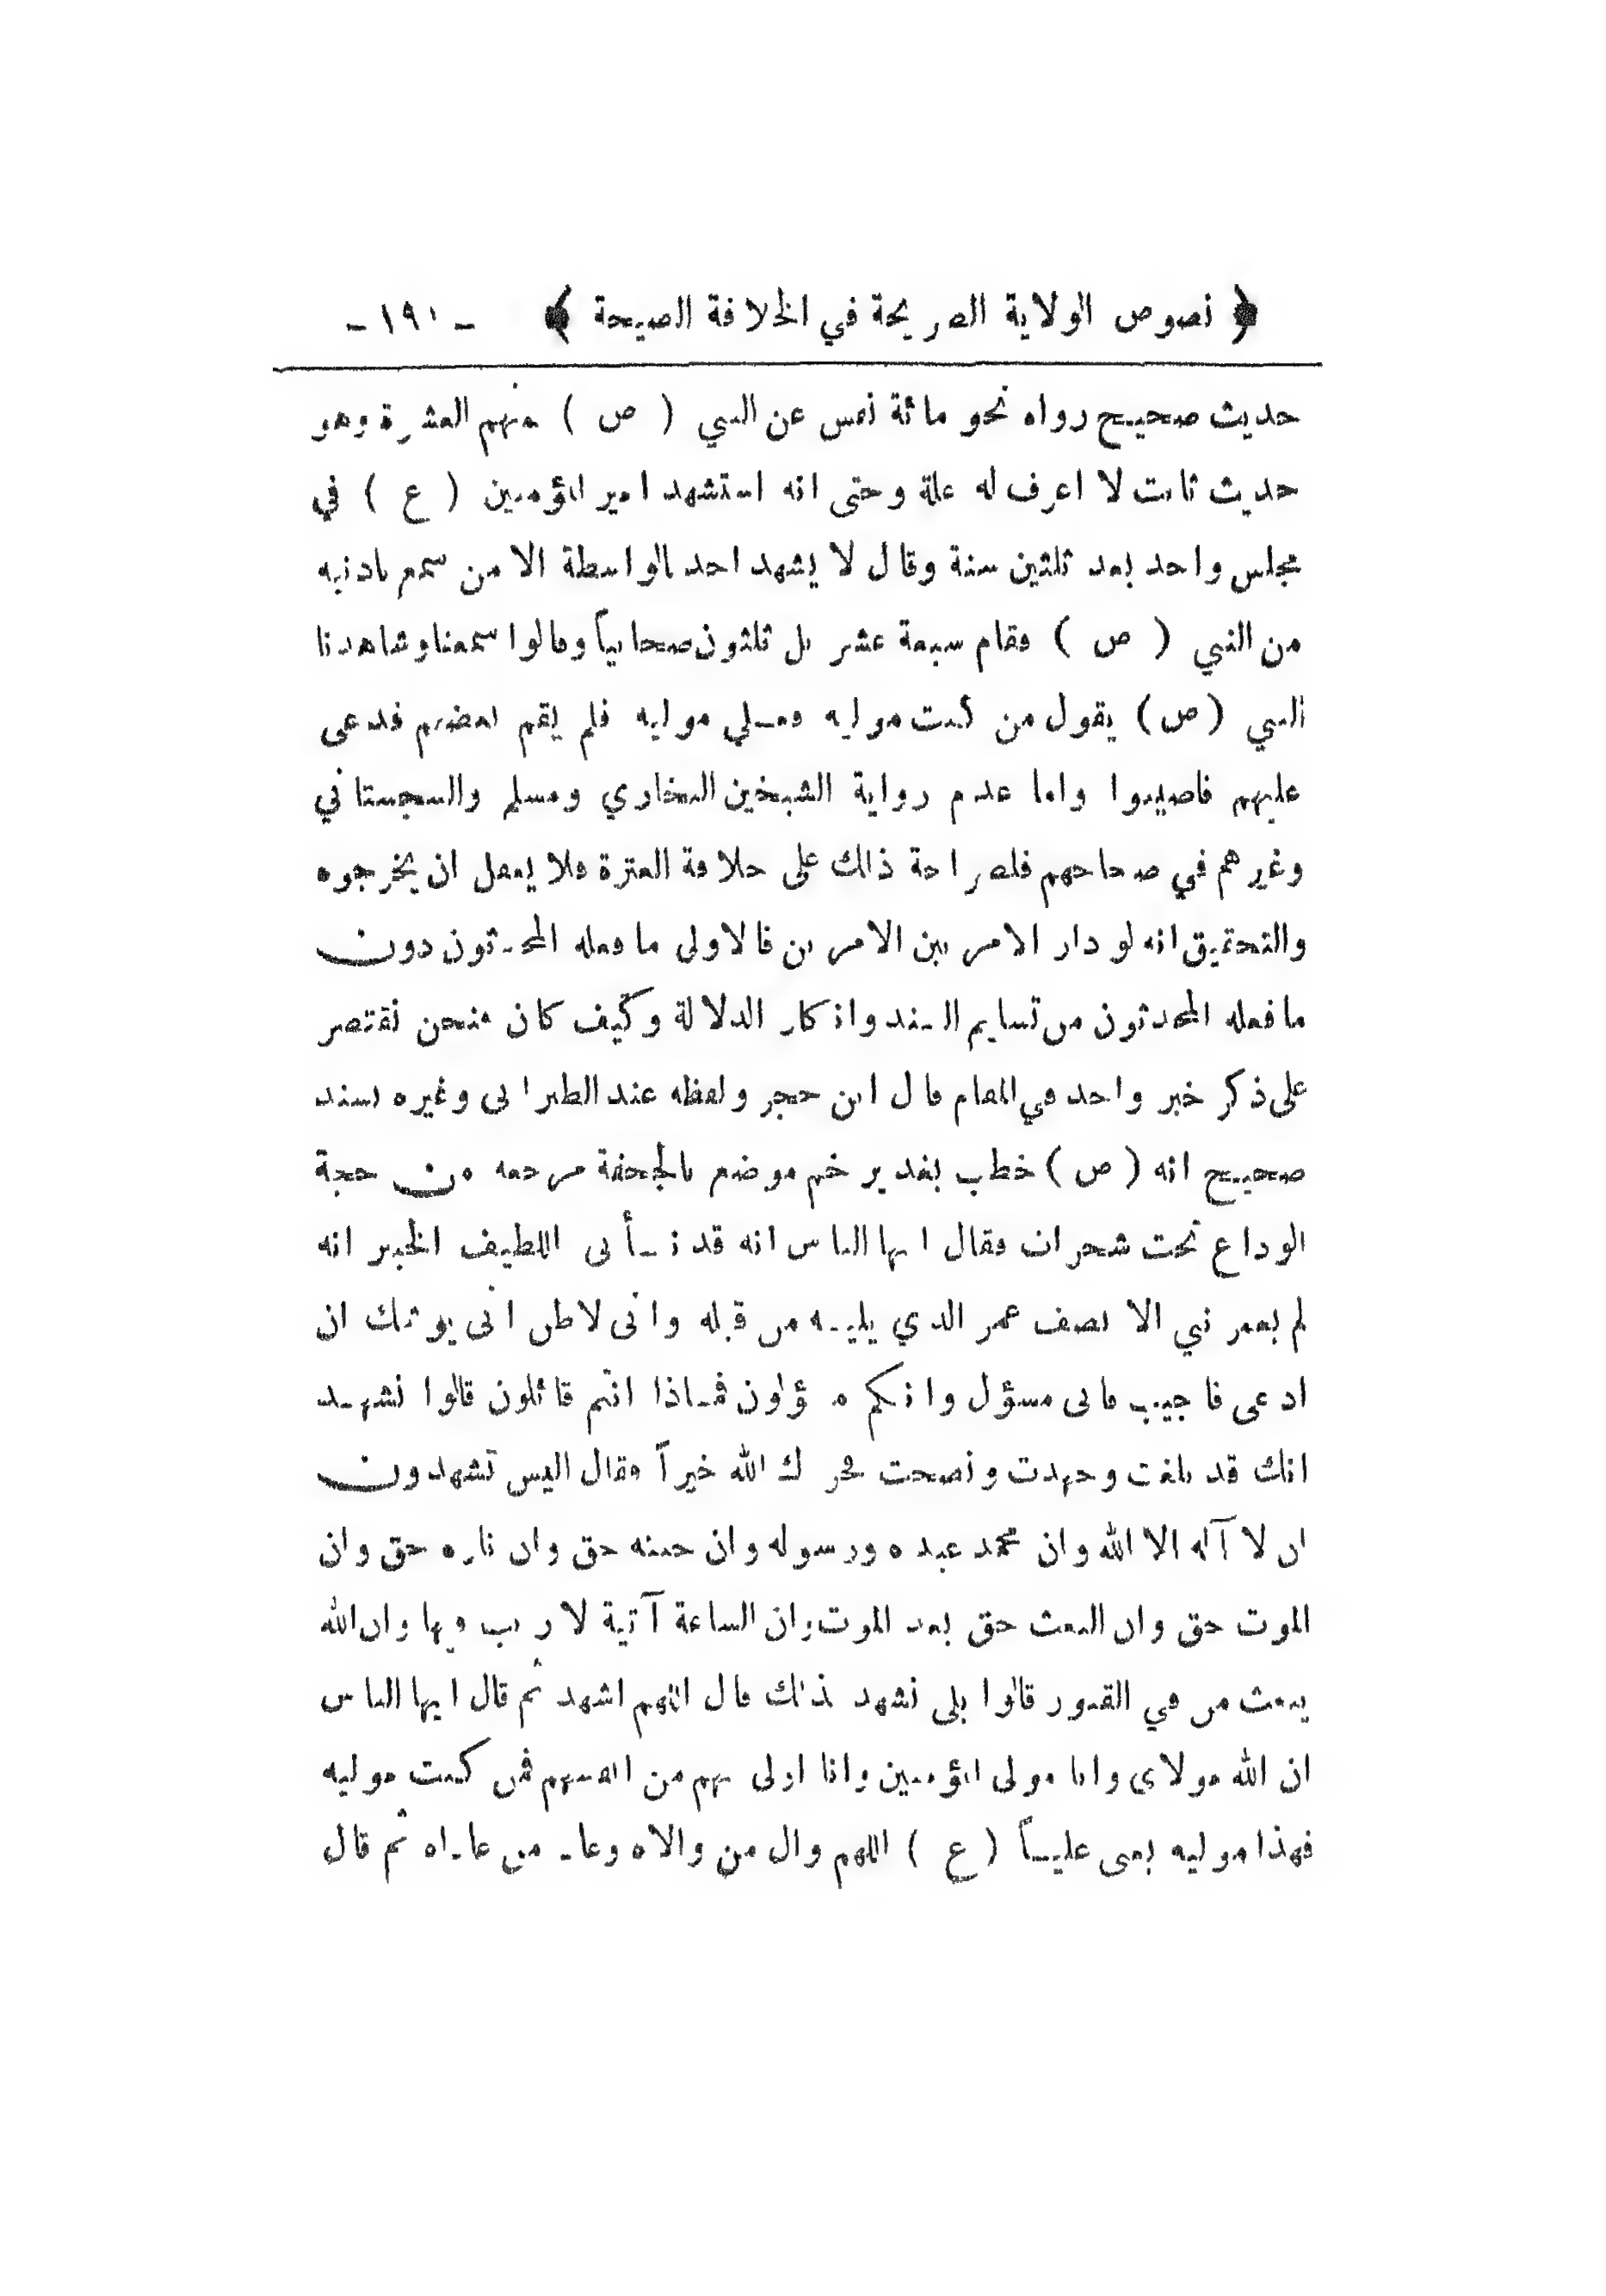 ﴿ نصوص الولاية الصريحة في الخلافة الصيحة ﴾ - ١٩١ -
حديث صحيح رواه نحو مائة نفس عن النبي ( ص ) منهم العشرة وهو
حديث ثابت لا اعرف له علة وحتى انه استشهد امير المؤمنين ( ع ) في
مجلس واحد بعد ثلثين سنة وقال لا يشهد احد بالواسطة الا من سمع باذنيه
من النبي ( ص ) فقام سبعة عشر بل ثلثون صحابياً وقالوا سمعنا وشاهدنا
النبي (ص) يقول من كنت موليه فعلي موليه فلم يقم بعضهم فدعى
عليهم فاصيبوا واما عدم رواية الشيخين البخاري ومسلم والسجستاني
وغيرهم في صحاحهم فلصراحة ذلك على خلافة العترة فلا يعقل ان يخرجوه
والتحقيق انه لو دار الامر بين الامرين فالاولى ما فعله المحدثون دون
ما فعله المحدثون من تسليم السند وانكار الدلالة وكيف كان فنحن نقتصر
على ذكر خبر واحد في المقام قال ابن حجر ولفظه عند الطبراني وغيره بسند
صحيح انه ( ص ) خطب بغدير خم موضع بالجحفة مرجعه من حجة
الوداع تحت شجرات فقال ايها الناس انه قد نبأني اللطيف الخبير انه
لم يعمر نبي الا نصف عمر الذي يليه من قبله واني لاظن اني يوشك ان
ادعى فاجيب فاني مسؤل وانكم مسؤلون فماذا انتم قائلون قالوا نشهد
انك قد بلغت وجهدت ونصحت فجزاك الله خيراً فقال اليس تشهدون
ان لا آله الا الله وان محمد عبده ورسوله وان جنته حق وان ناره حق وان
الموت حق وان البعث حق بعد الموت وان الساعة آتية لا ريب فيها وان الله
يبعث من في القبور قالوا بلى نشهد بذلك قال اللهم اشهد ثم قال ايها الناس
ان الله مولاى وانا مولى المؤمنين وانا اولى بهم من انفسهم فمن كنت موليه
فهذا موليه يعنى علياً ( ع ) اللهم وال من والاه وعاد من عاداه ثم قال